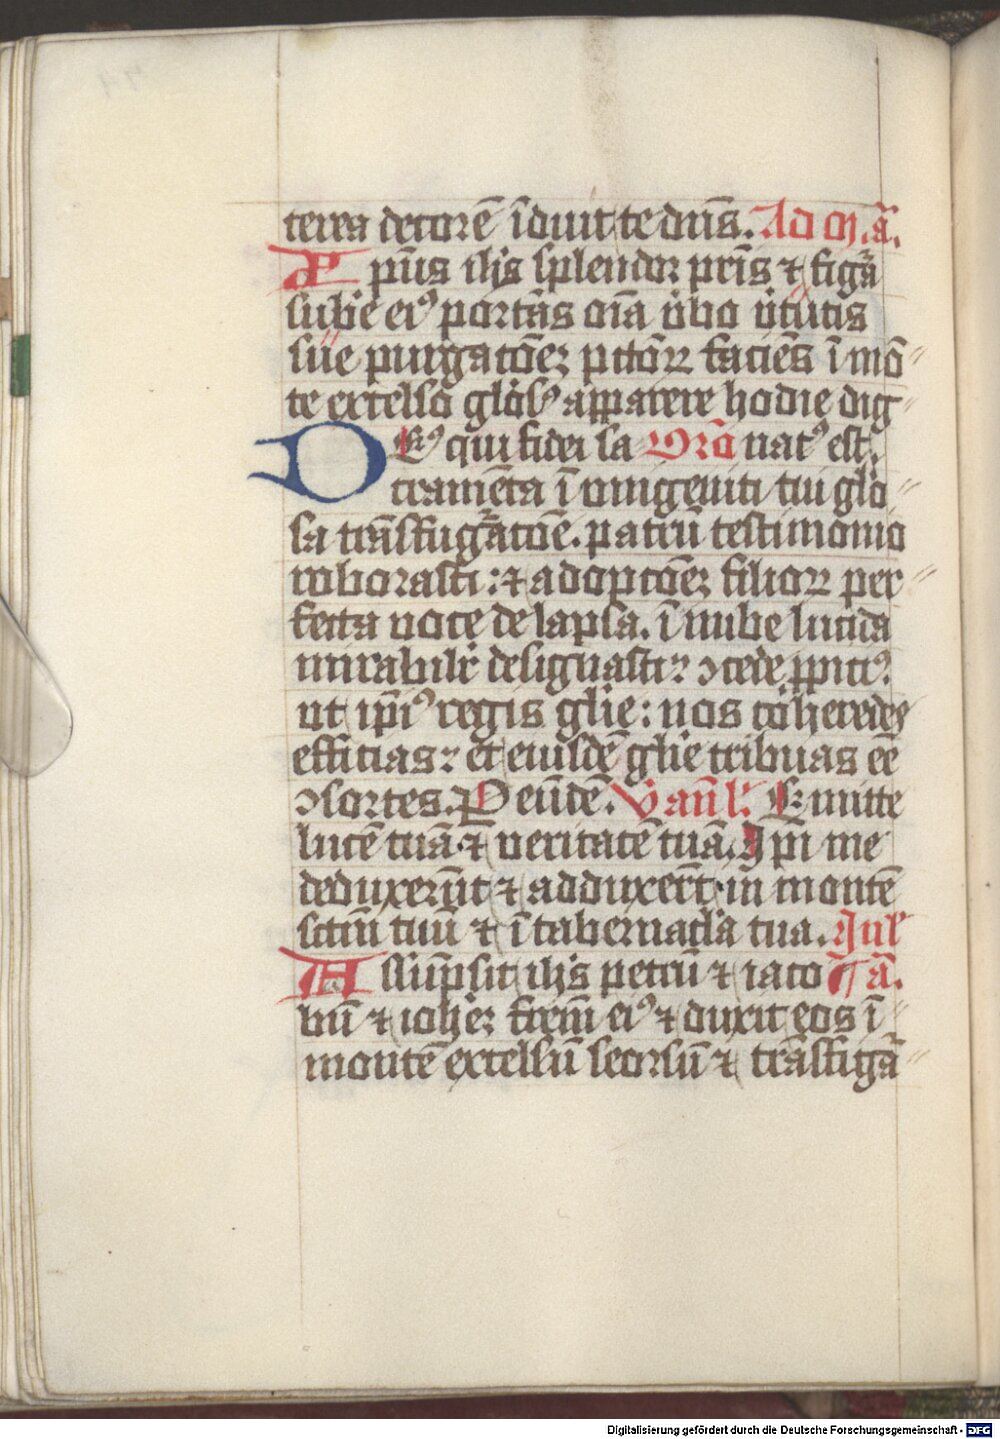 terea decorē īduit te dn̄s. Ad m. ā.
Xp̄us ih̄s splendor pr̄is ⁊ figā
sub̄e eiꝰ portās oīa ūbo ūtutis
sūe purgatōeꝫ pctōꝝ faciēs ī mō
te excelso glōsꝰ apparere hodie dig
Deꝰ qui fidei sa Orō natꝰ est.
cramēta ī vnigeniti tui glō
sa trāsfigatōe. patrū testimonio
roborasti: ⁊ adoptōeꝫ filioꝝ per
fecta uoce delapsa. ī nube lucida
mirabilr̄ designasti: ↄcede ꝓpiciꝰ
ut ip̄iꝰ regis glīe: nos cōheredes
efficias: et eiusdē glīe tribuas eē
ↄsortes. P eūdē. V añl. Emitte
lucē tuā ⁊ ueritatē tuā. Ip̄i me
deduxerūt ⁊ adduxerr̄t in montē
sctm̄ tuū ⁊ ī tabernacl̄a tua. Inl
Assūpsit ih̄s petrū ⁊ iaco ¶ ā.
bū ⁊ ioh̄eꝫ frēm eiꝰ ⁊ duxit eos ī
montē excelsū seorsū ⁊ trāsfigā
Digitalisierung gefördert durch die Deutsche Forschungsgemeinschaft - DFG